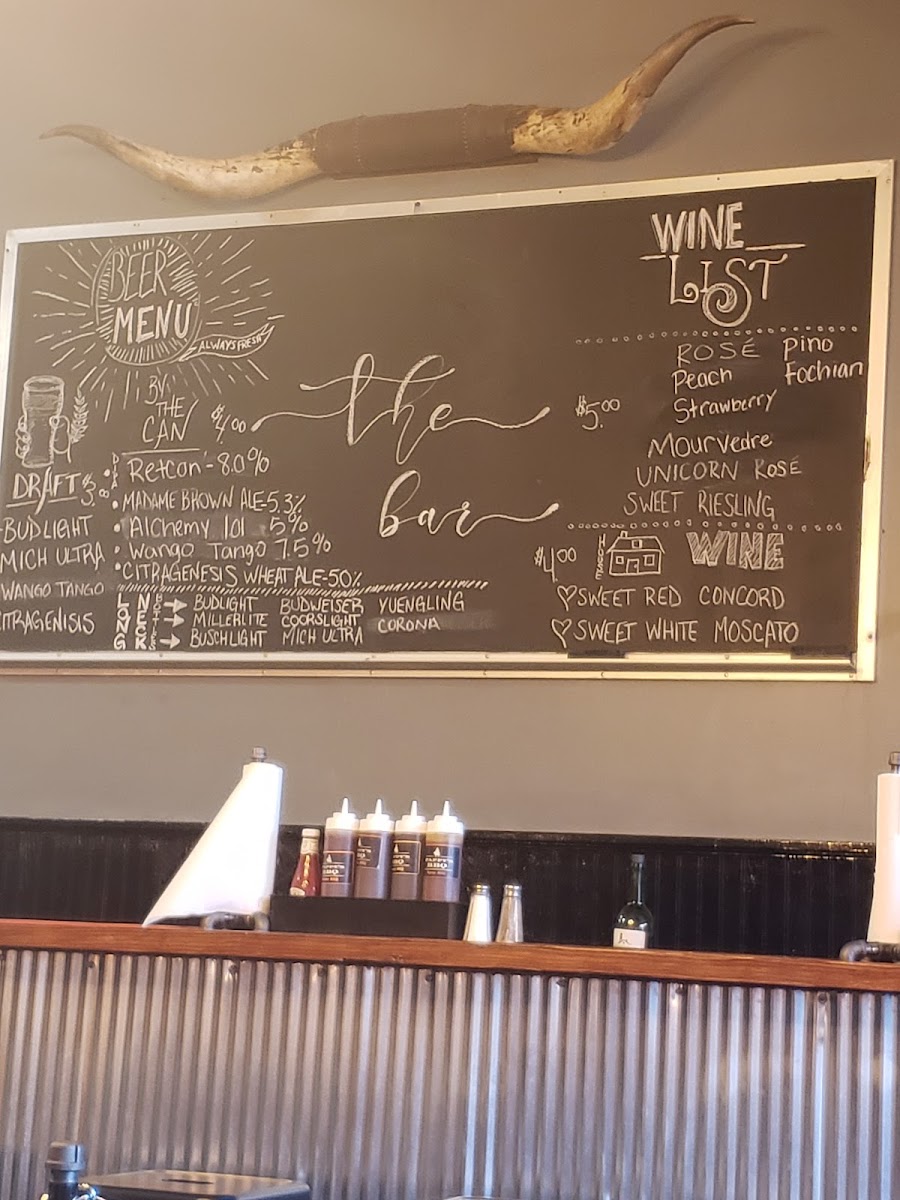 BEER
MENU
ALWAYS FRESH
BY
THE
CAN
$4.00
DRAFT $3.00
BUDLIGHT
MICH ULTRA
WANGO TANGO
CITRAGENISIS
Retcon - 8.0%
MADAME BROWN ALE-5.3%
Alchemy 101 5%
Wango Tango 7.5%
CITRAGENESIS WHEAT ALE-50%
LONG
NECK
BOTTLES
BUDLIGHT BUDWEISER YUENGLING
MILLERLITE COORSLIGHT CORONA
BUSCHLIGHT MICH ULTRA
the
bar
WINE
LIST
$5.00
ROSÉ Pino
Peach Fochian
Strawberry
Mourvedre
UNICORN ROSÉ
SWEET RIESLING
$4.00 HOUSE WINE
SWEET RED CONCORD
SWEET WHITE MOSCATO
BBQ
BBQ
BBQ